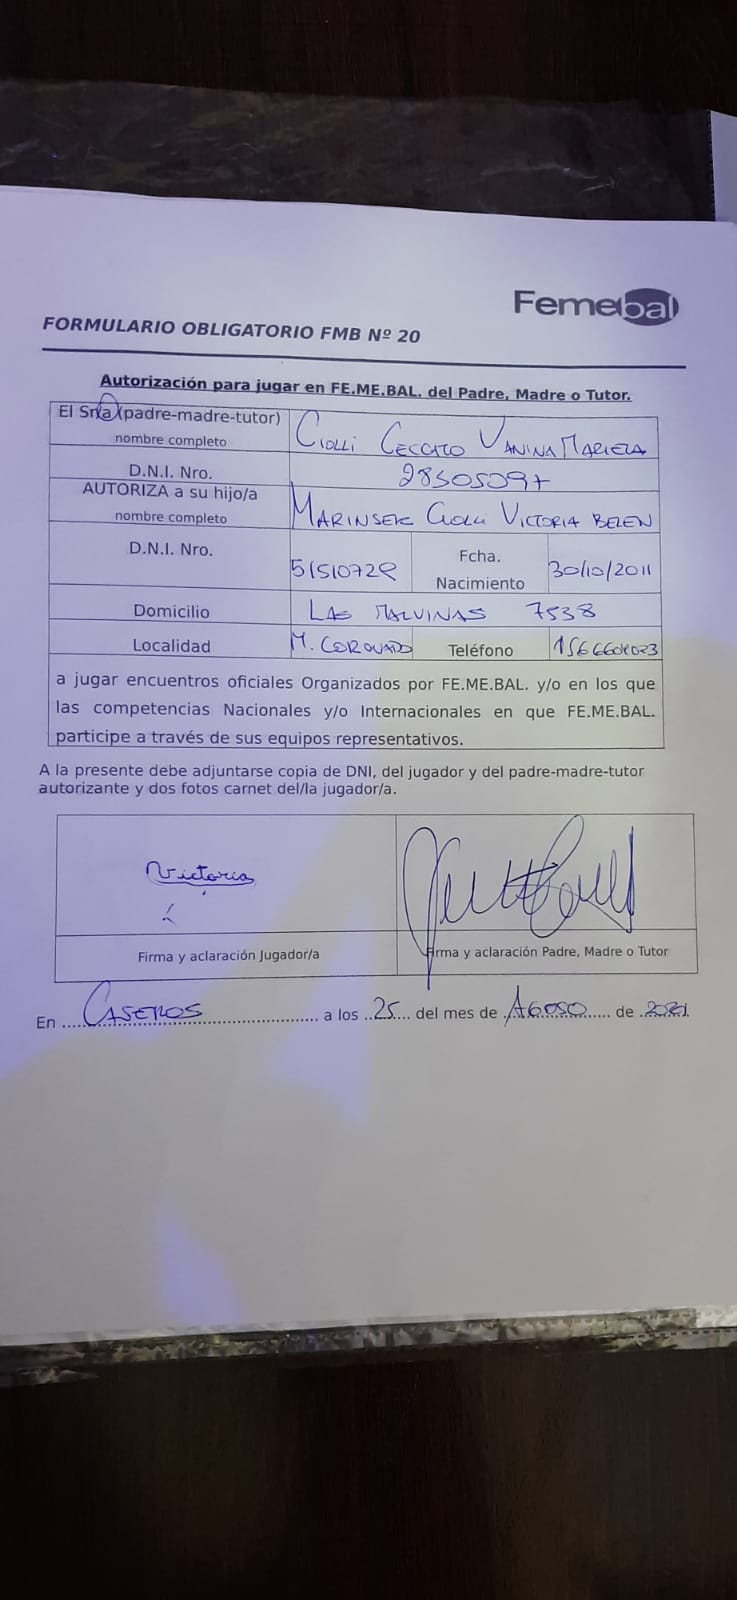 Femebal
FORMULARIO OBLIGATORIO FMB Nº 20
Autorización para jugar en FE.ME.BAL. del Padre, Madre o Tutor.
El Sr/a (padre-madre-tutor) nombre completo CIOLLI CECCATO VANINA MARIELA
D.N.I. Nro. 28505097
AUTORIZA a su hijo/a nombre completo MARINSEK CIOLLI VICTORIA BELEN
D.N.I. Nro. 51510729 Fcha. Nacimiento 30/10/2011
Domicilio LAS MALVINAS 7538
Localidad M. CORONADO Teléfono
a jugar encuentros oficiales Organizados por FE.ME.BAL. y/o en los que
las competencias Nacionales y/o Internacionales en que FE.ME.BAL.
participe a través de sus equipos representativos.
A la presente debe adjuntarse copia de DNI, del jugador y del padre-madre-tutor
autorizante y dos fotos carnet del/la jugador/a.
Victoria
Firma y aclaración Jugador/a Firma y aclaración Padre, Madre o Tutor
En CASEROS a los 25 del mes de AGOSO de 2021